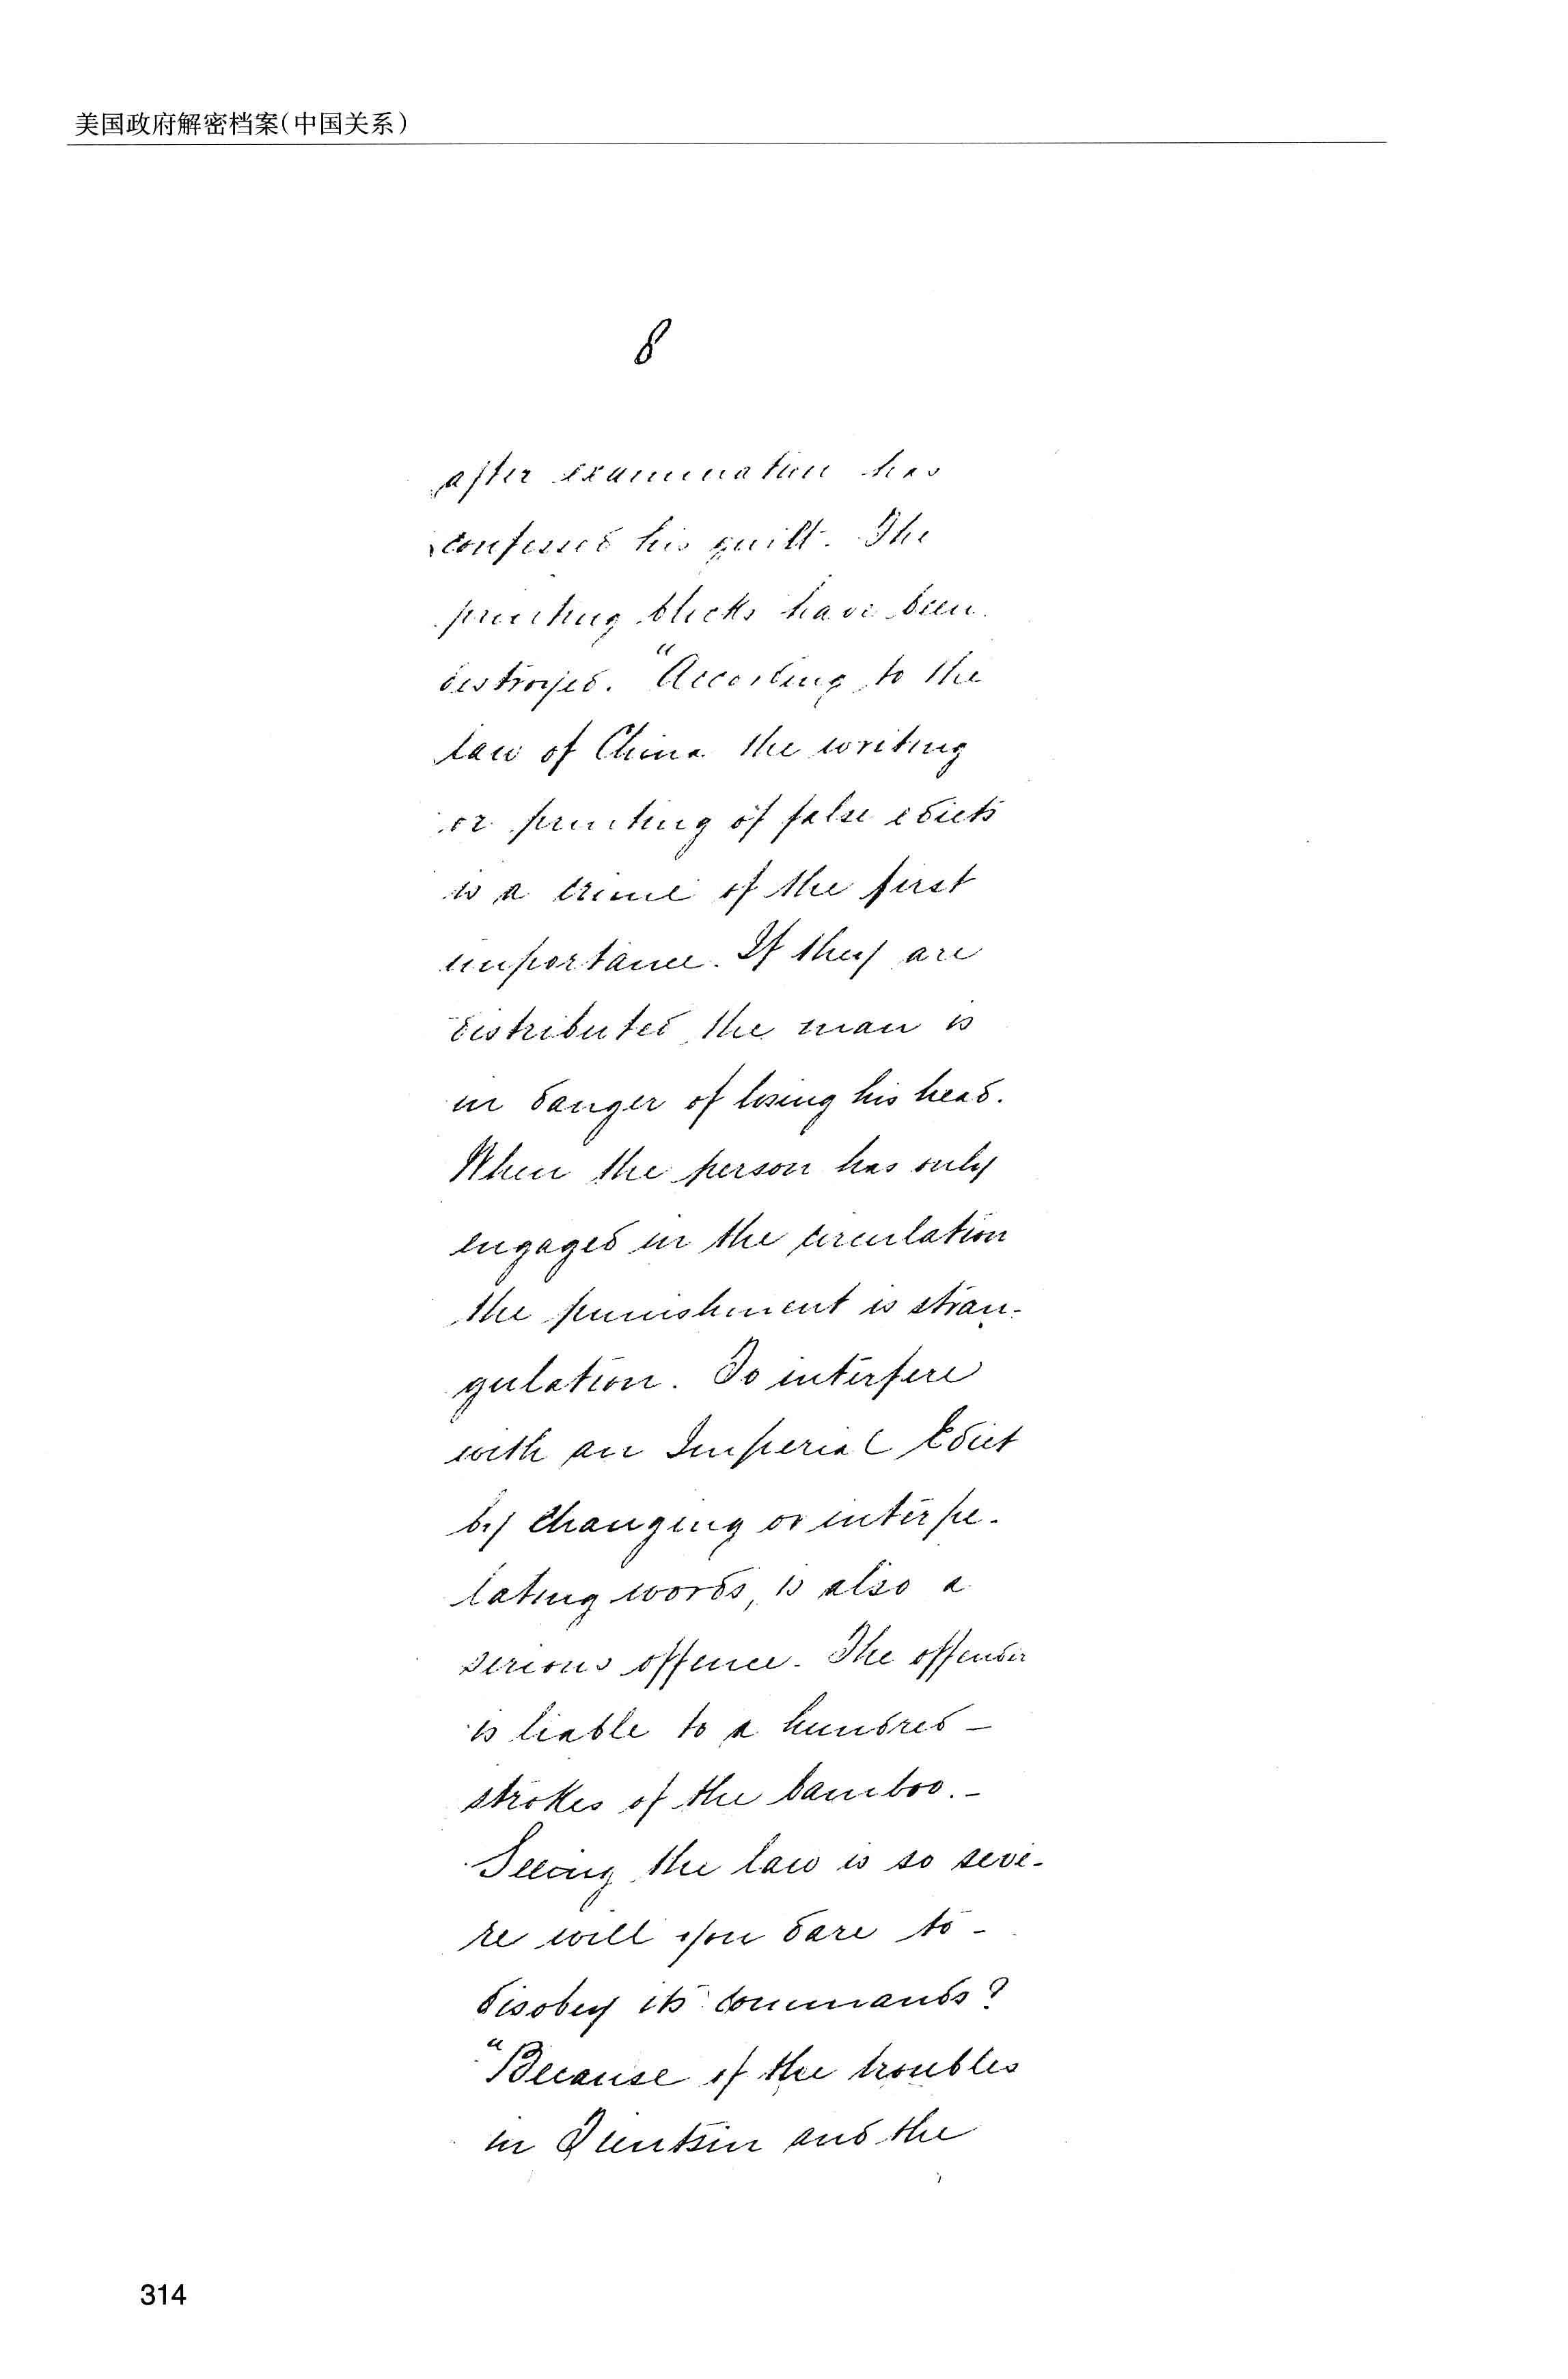 美国政府解密档案(中国关系)
8
after examination has
confessed his guilt. The
printing blocks have been
destroyed. "According to the
law of China the writing
or printing of false edicts
is a crime of the first
importance. If they are
distributed the man is
in danger of losing his head.
When the person has only
engaged in the circulation
the punishment is stran-
gulation. To interfere
with an Imperial Edict
by changing or interpo-
lating words, is also a
serious offence. The offender
is liable to a hundred –
strokes of the bamboo. –
Seeing the law is so seve-
re will you dare to –
disobey its commands?
"Because of the troubles
in Tientsin and the
314